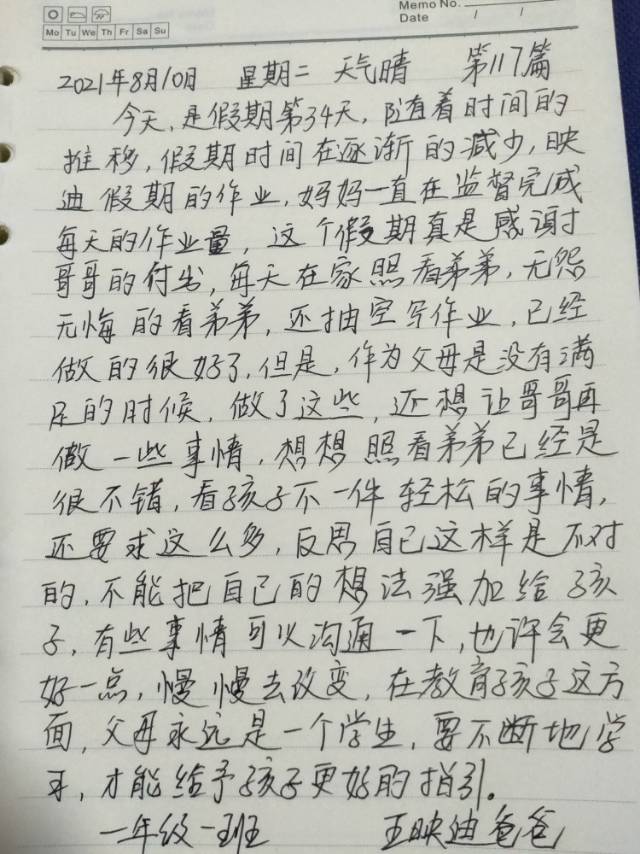 Memo No.
Mo Tu We Th Fr Sa Su
Date / /
2021年8月10日 星期二 天气晴 第117篇
今天,是假期第34天,随着时间的
推移,假期时间在逐渐的减少,映
迪假期的作业,妈妈一直在监督完成
每天的作业量,这个假期真是感谢
哥哥的付出,每天在家照看弟弟,无怨
无悔的看弟弟,还抽空写作业,已经
做的很好了,但是,作为父母是没有满
足的时候,做了这些,还想让哥哥再
做一些事情,想想照看弟弟已经是
很不错,看孩子不一件轻松的事情,
还要求这么多,反思自己这样是不对
的,不能把自己的想法强加给孩
子,有些事情可以沟通一下,也许会更
好一点,慢慢去改变,在教育孩子这方
面,父母永远是一个学生,要不断地学
习,才能给予孩子更好的指引。
一年级一班 王映迪爸爸